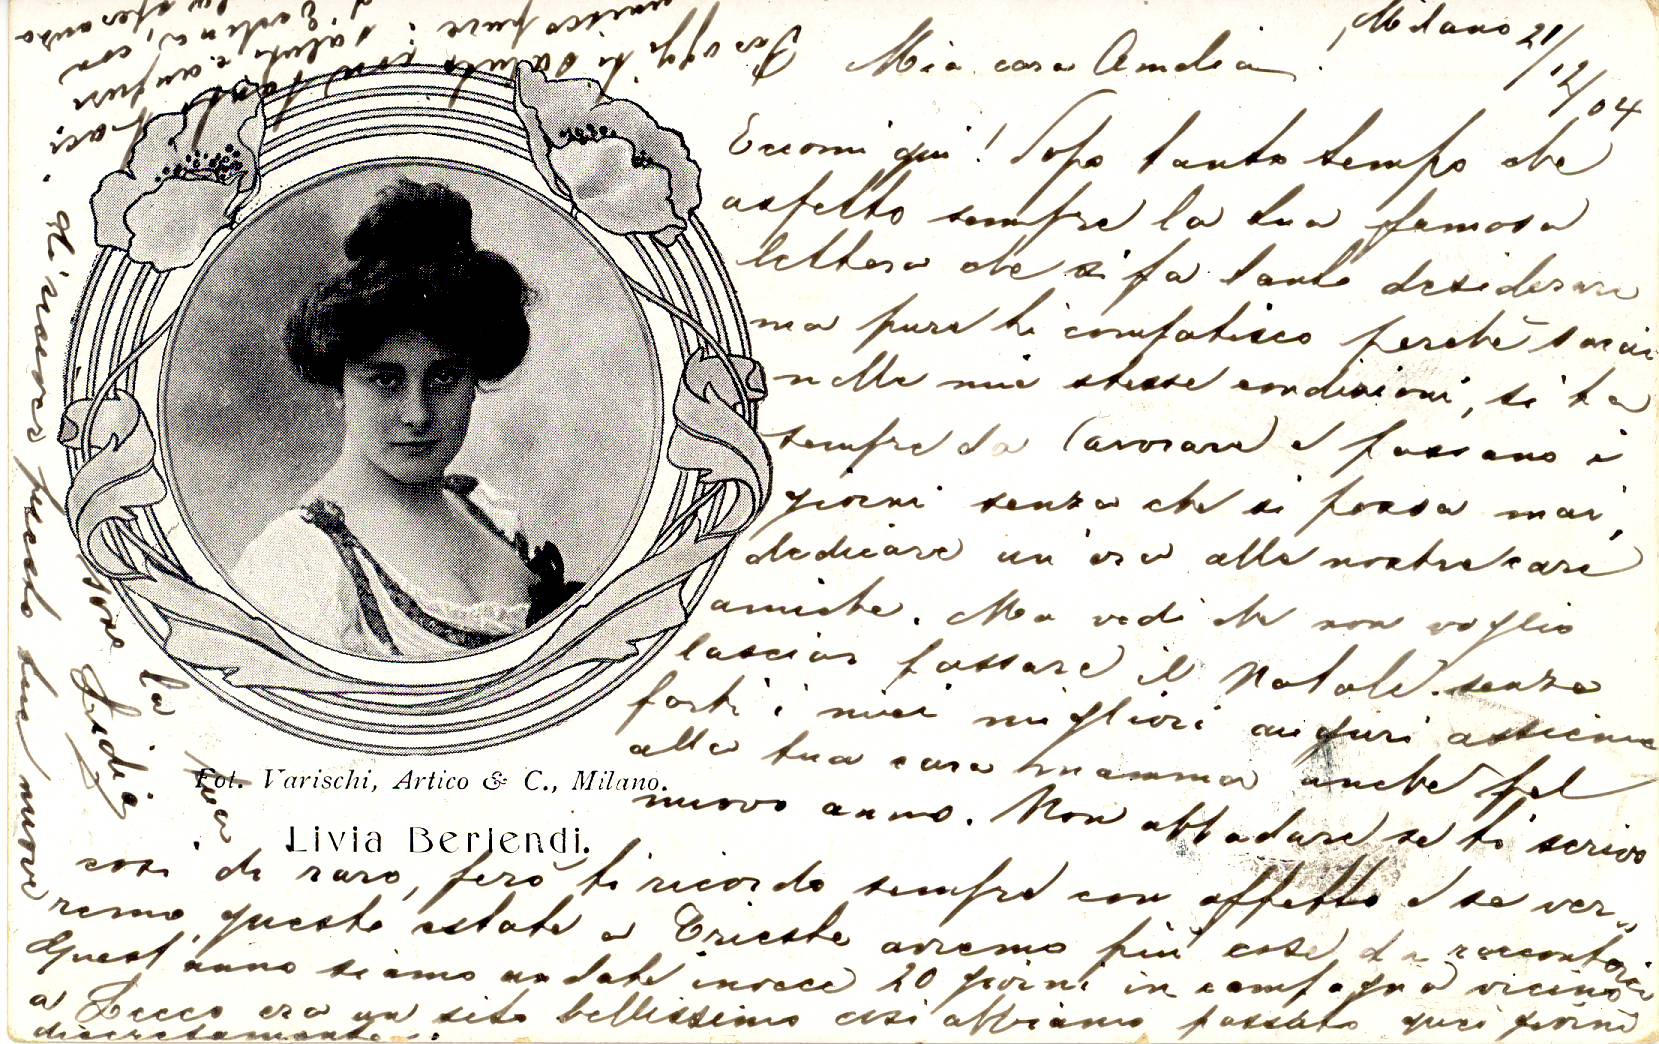 Milano 21/12/04
Mia cara Amelia
Eccomi qui! Dopo tanto tempo che
aspetto sempre la tua famosa
lettera che si fa tanto desiderare
ma pure ti compatisco perchè sarai
nelle mie stesse condizioni, si ha
sempre da lavorare e passano i
giorni senza che si possa mai
dedicare un'ora alle nostre care
amiche. Ma vedi che non voglio
lasciar passare il Natale senza
farti i miei migliori auguri assieme
alla tua cara mamma anche pel
nuovo anno. Non abbadare se ti scrivo
così di raro, però ti ricordo sempre con affetto e se ver-
remo questa estate a Trieste avremo più cose da raccontarci
Quest'anno siamo andate invece 20 giorni in campagna vicino
a Lecco era un sito bellissimo così abbiamo passato quei giorni
discretamente.
Per oggi ti saluto con tanti baci.
unisco pure i saluti e auguri
d'Ersilia, con
la speranza
di ricever presto tue nuove
sono la tua
Lidia
Fot. Varischi, Artico & C., Milano.
Livia Berlendi.